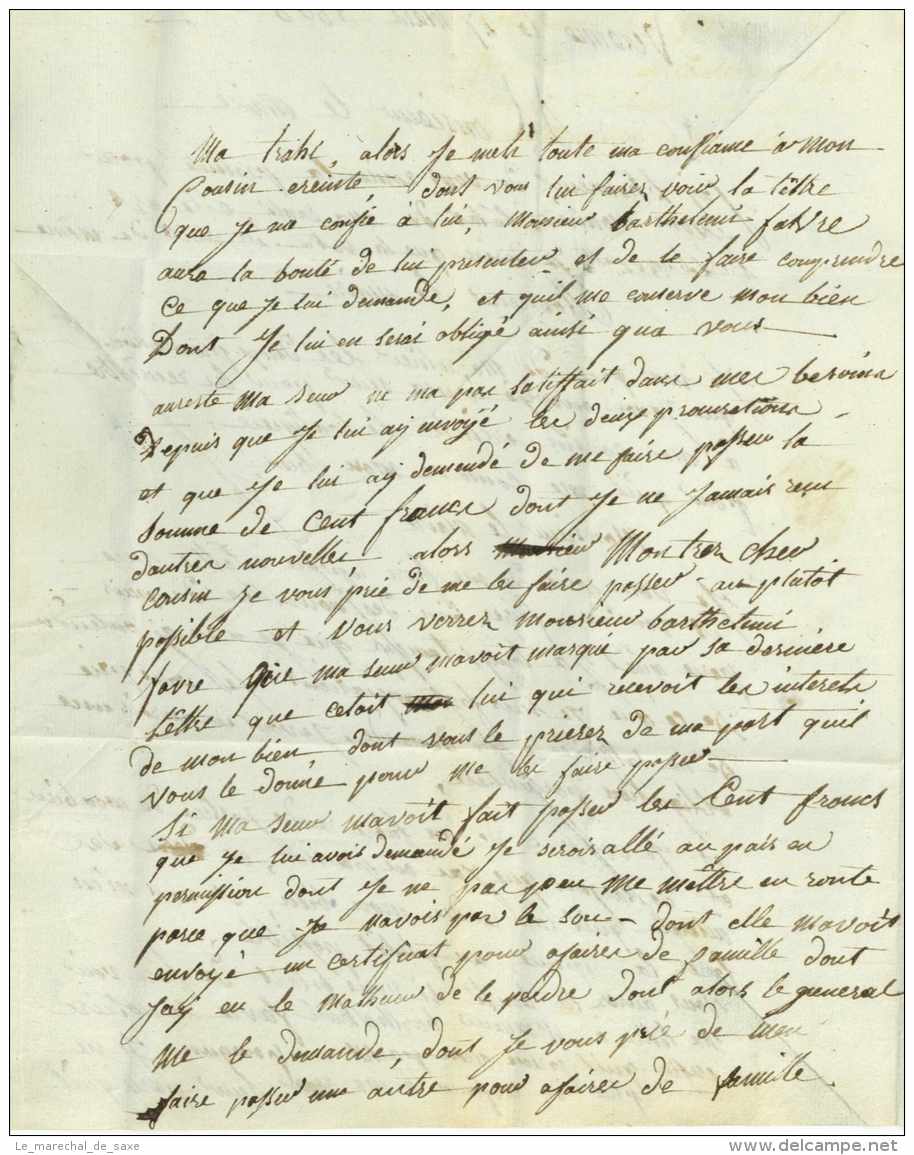 Ma trahi, alors Je mets toute ma confiance à Mon
Cousin ereinte, dont vous lui fairez voir la lêttre
que Je me confie à lui, Monsieur barthelemi faivre
aura la bonté de lui presenter et de le faire comprendre
ce que Je lui demande, et quil me conserve mon bien
Dont Je lui en serai obligé ainsi qua vous
aureste Ma seur ne ma pas satiffait dans mes besoins
Depuis que Je lui aÿ envoyé les deux procurations
et que Je lui aÿ demendé de me faire passer la
somme de Cent francs dont Je ne Jamais reçu
dautres nouvelles, alors Montrez cher
cousin Je vous prie de me les faire passer au plutôt
possible et Vous verrez monsieur barthelmi
favre Que ma seur mavoit marqué par sa derniere
lêttre que cetoit lui qui recevoit les interets
de mon bien dont vous le prierez de ma part quil
vous le donne pour me les faire passer
Si ma seur mavoit fait passer les Cent francs
que Je lui avois demandé Je serois allé au païs en
permission dont Je ne pas peu me mêttre en route
parce que Je navois pas le sou dont elle mavoit
envoyé un certificat pour afaires de famille dont
Jaÿ eu le Malheur de le perdre dont alors le general
me le demande, dont Je vous prie de men
faire passer une autre pour afaires de famille.
Le_marechal_de_saxe
www.delcampe.net